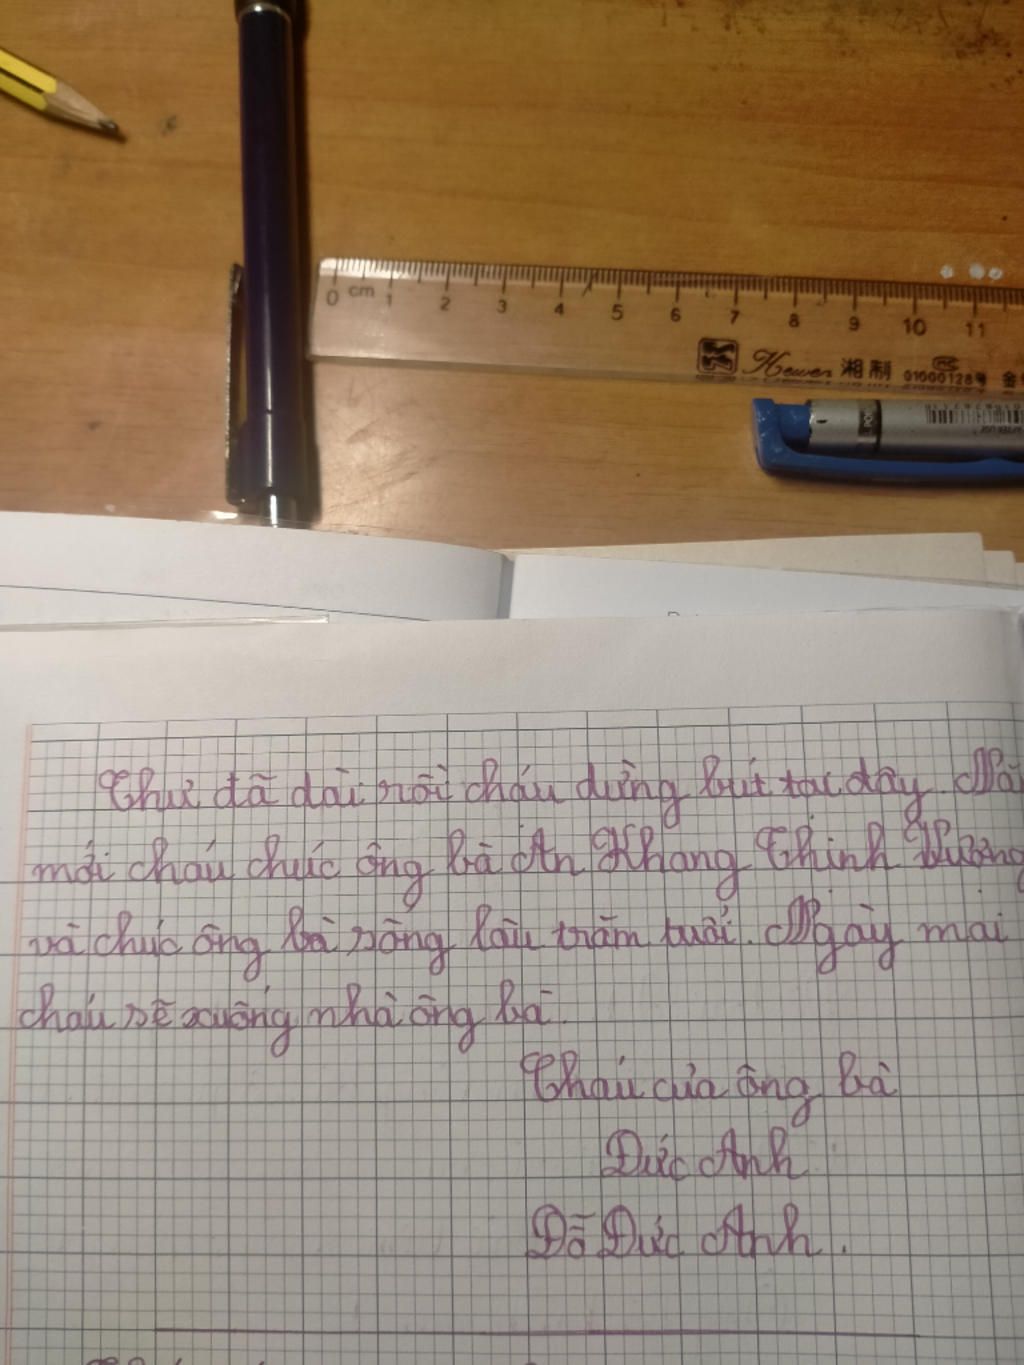 0 cm 1 2 3 4 5 6 7 8 9 10 11
Hewen 湘制 01000128号
Thư đã dài rồi cháu dừng bút tại đây. Nă
mới cháu chúc ông bà An Khang Thịnh Vượng
và chúc ông bà sống lâu trăm tuổi. Ngày mai
cháu sẽ xuống nhà ông bà.
Cháu của ông bà
Đức Anh
Đỗ Đức Anh.